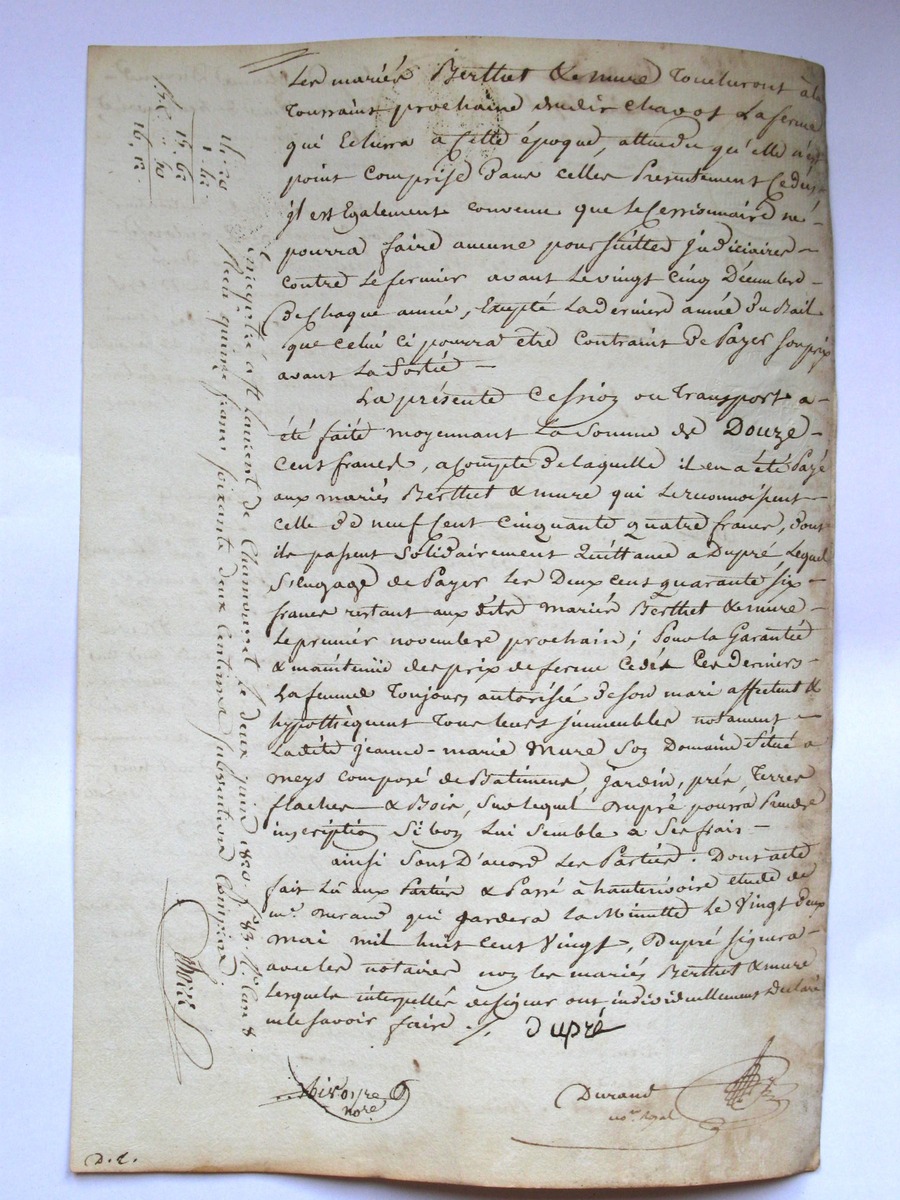 Les mariés Berthet & mure Toucheront à la
Toussaint prochaine dudit chavot La ferme
qui Echerra a Cette époque, attendu qu'elle n'est
point Comprise dans celles Presentement Cedées
il est Egalement convenu que le Cessionnaire ne
pourra faire aucune poursuittes judiciaires
contre le fermier avant le vingt cinq Décembre
de Chaque année, Excepté La derniere année du Bail
que celui ci pourra être Contraint de Payer son prix
avant La Sortie
La présente Cession ou Transport a
été faite moyennant La Somme de Douze
Cent francs, acompte de laquelle il en a été Payé
aux mariés Berthet & mure qui Le reconnoissent
celle de neuf Cent Cinquante quatre francs, dont
ils passent Solidairement Quittance a Dupré Lequel
S'Engage de Payer Les Deux cent quarante six
francs restant aux dits mariés Berthet & mure
Le premier novembre prochain; Pour la Garantie
& maintenüe des prix de ferme Cedés Les derniers
La femme Toujours autorisée de Son mari affectent &
hypothèquent Tous leurs immeubles notament
Ladite Jeanne-marie Mure Son Domaine Situé a
meys composé de Batimens, Jardin, prés, Terres
flaches & Bois, Sur lequel Dupré pourra Prendre
inscription Si bon Lui Semble a Ses frais
ainsi Sont D'accord Les Parties. Dont acte
fait Lû aux Parties & Passé à hauterivoire étude de
me. Durand qui gardera La Minutte Le Vingt deux
mai mil huit cent Vingt, Dupré signera
avec les notaires non les mariés Berthet & mure
Lesquels interpellés de signer ont individuellement Déclaré
ne le Savoir faire ./.
dupré
nore
Durand
nore. Royal
D. L.
Enregistré à St Laurent de Chamousset le deux juin 1820. fo 83. Ro Can 8.
Reçu quinze francs soixante deux Centimes subvention Comprise